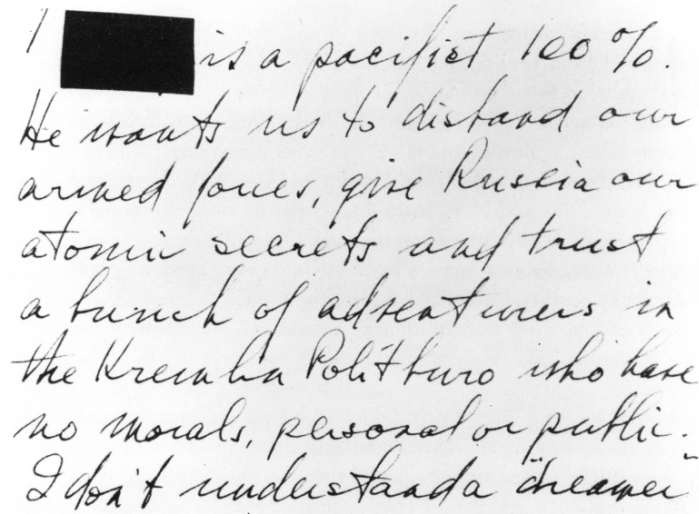 is a pacifist 100%.
He wants us to disband our
armed forces, give Russia our
atomic secrets and trust
a bunch of adventurers in
the Kremlin Politburo who have
no morals, personal or public.
I don't understand a "dreamer"